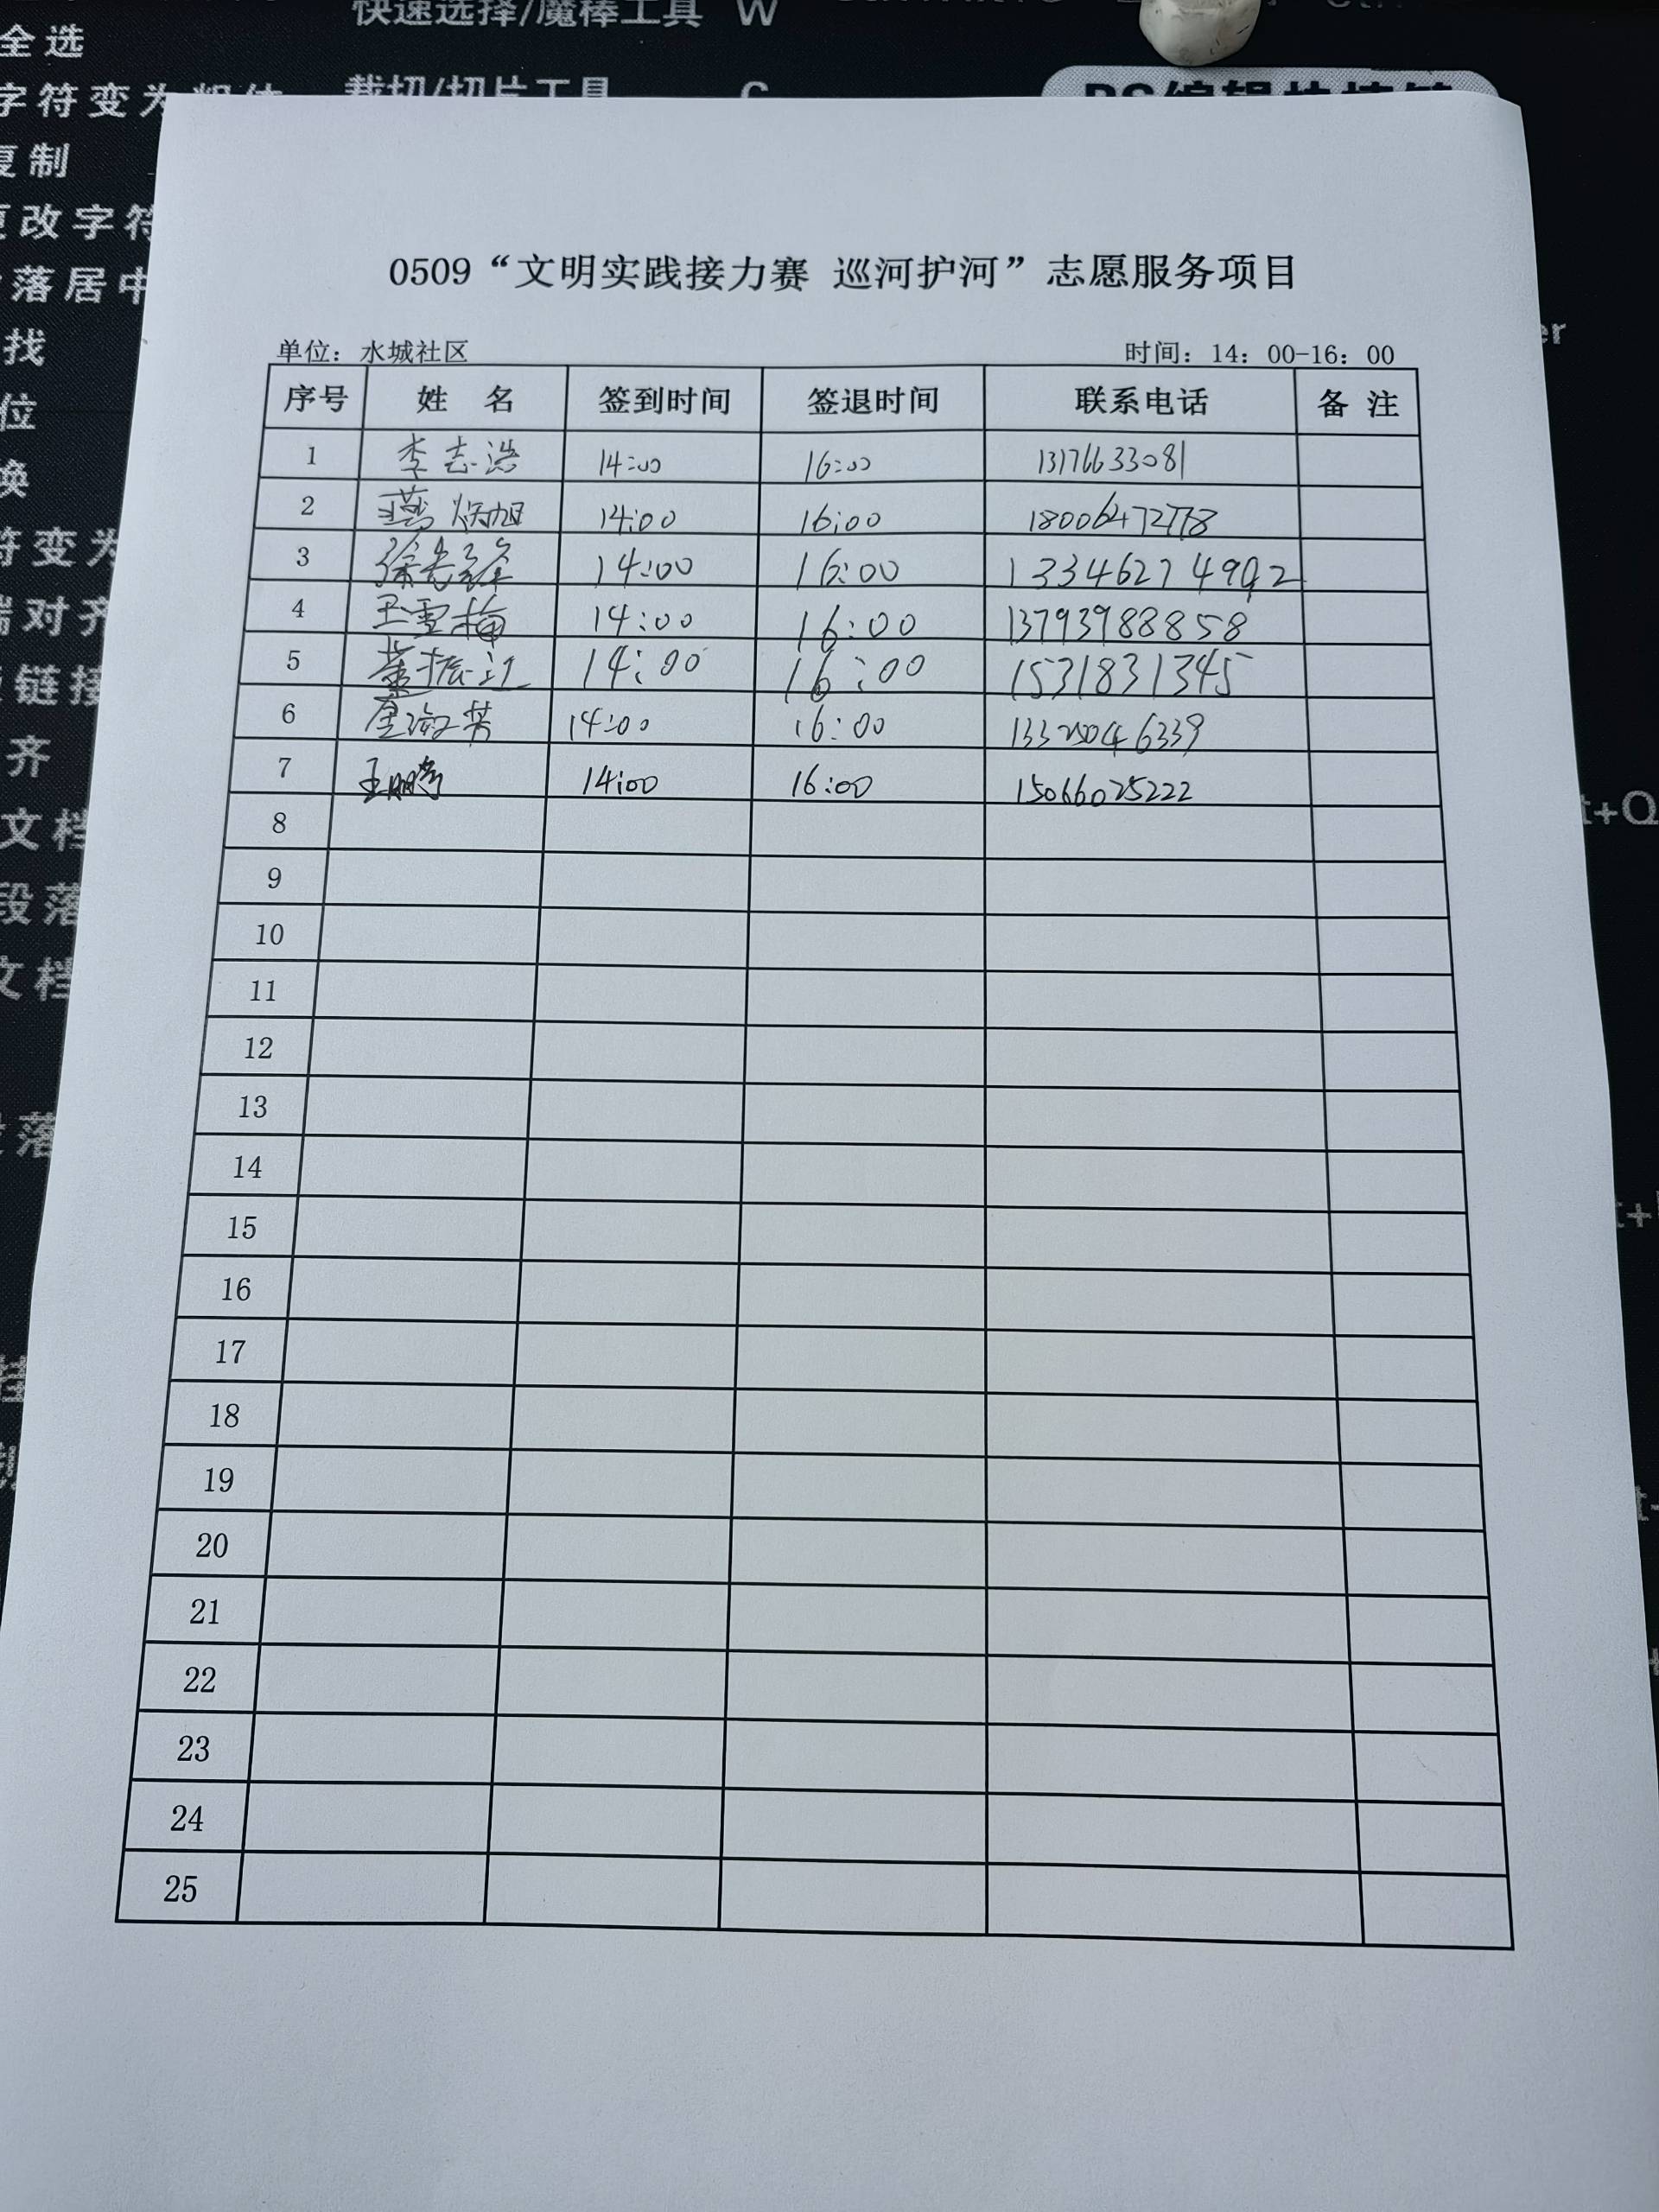 快速选择/魔棒工具 W
全选
字符变为
裁切/切片工具 C
复制
更改字符
落居中
找
位
换
符变为
端对齐
链接
齐
文档
段落
文档
段落
t+Q
0509“文明实践接力赛 巡河护河”志愿服务项目
单位：水城社区 时间：14：00-16：00
序号 姓 名 签到时间 签退时间 联系电话 备 注
1 李志浩 14:00 16:00 13176633081
2 炳旭 14:00 16:00
3 14:00 16:00 13346274992
4 王雪梅 14:00 16:00 13793988858
5 振江 14:00 16:00 1531831345
6 14:00 16:00
7 王鹏 14:00 16:00 15066025222
8
9
10
11
12
13
14
15
16
17
18
19
20
21
22
23
24
25